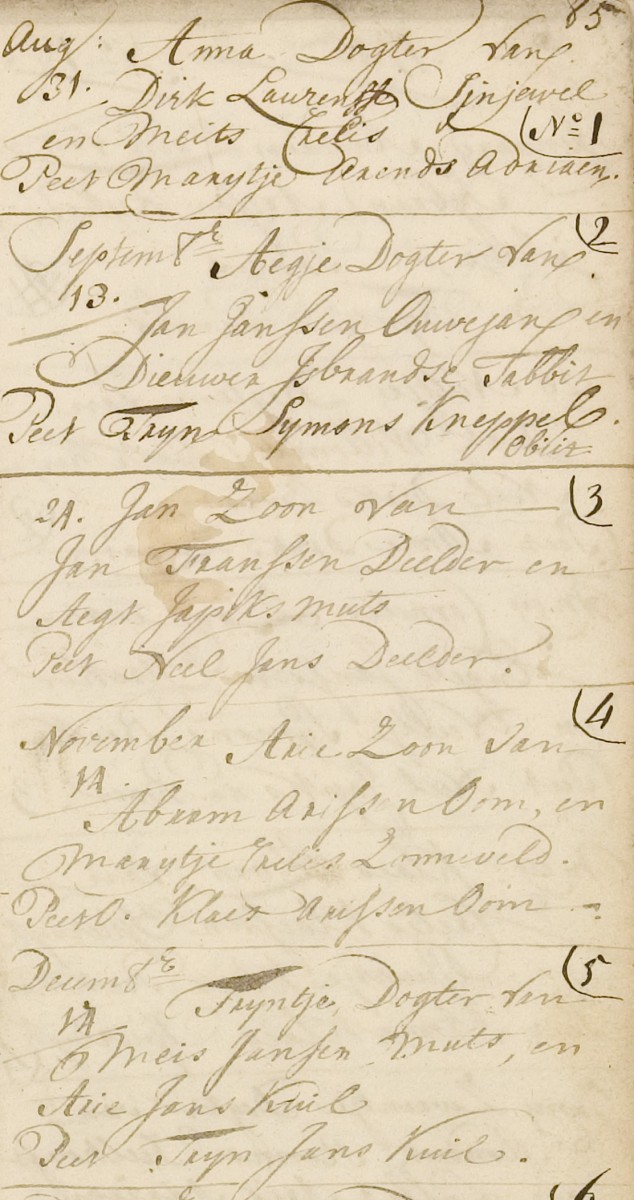 85
Aug: Anna Dogter van
31. Dirk Laurensse Sinjewel
en Meits Crelis No 1
Peet Marytje Arends Adriaen.
Septemb̅r̅ Aegje Dogter van 2
13. Jan Janssen Ouwejan en
Dieuwer Jsbrandse Tabbit
Peet Tryn Symons Kneppel.
Obiit
24. Jan Zoon van 3
Jan Franssen Deelder en
Aegt Japiks muts
Peet Neel Jans Deelder.
4
November Arie Zoon van
14. Abram Arissen Oom, en
Marytje Crelis Zonneveld.
Peet Klaes Arissen Oom
Decemb̅r̅ 5
14 Tryntje Dogter van
Meis Jansen Muts, en
Arie Jans Kuil
Peet Tryn Jans Kuil.
6